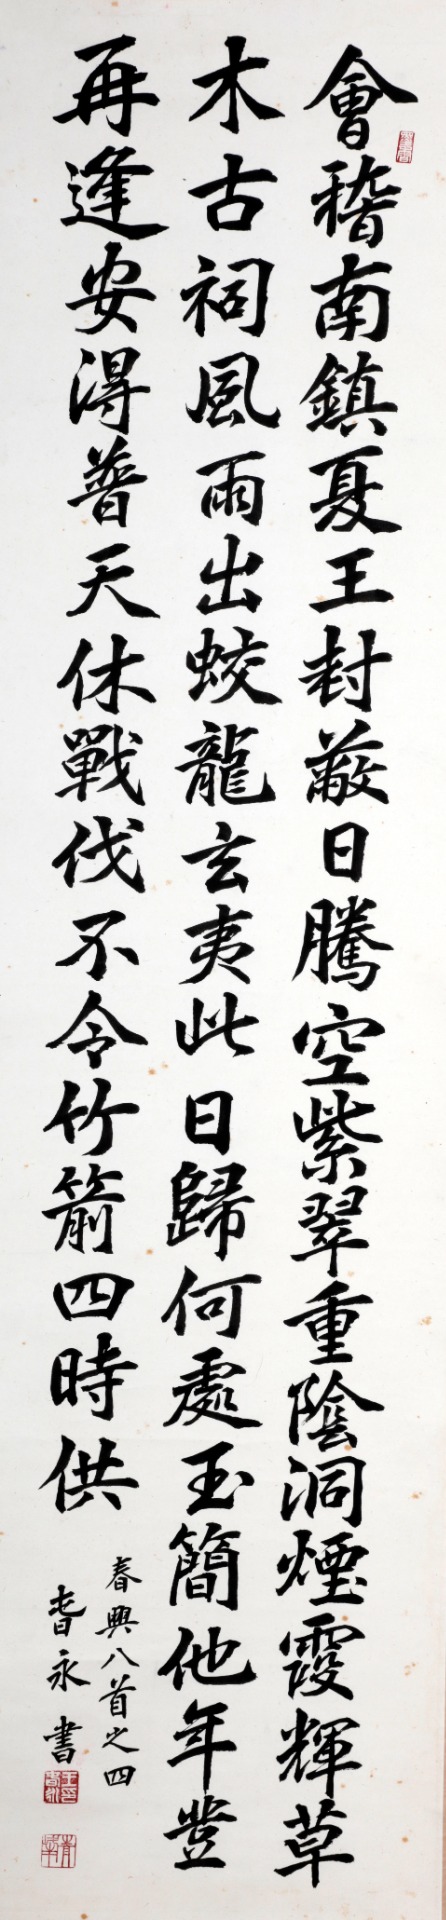 會稽南鎮夏王封蔽日騰空紫翠重陰洞煙霞輝草
木古祠風雨出蛟龍玄夷此日歸何處玉簡他年豈
再逢安得普天休戰伐不令竹箭四時供
春興八首之四
耆永書